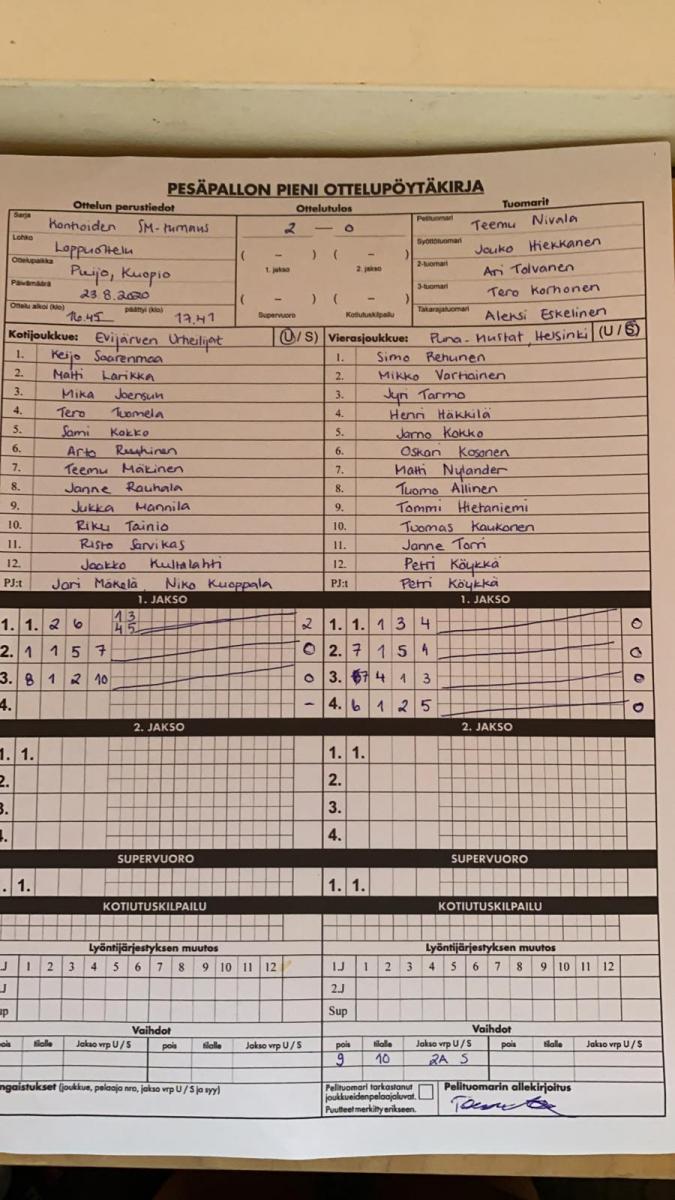 PESÄPALLON PIENI OTTELUPÖYTÄKIRJA
Ottelun perustiedot Ottelutulos Tuomarit
Sarja Kontioiden SM-turnaus
Lohko Loppuottelu
Ottelupaikka Puijo, Kuopio
Päivämäärä 23.8.2020
Ottelu alkoi (klo) 16.45 päättyi (klo) 17.41
2 — 0
( – ) ( – )
1. jakso 2. jakso
( – ) ( – )
Supervuoro Kotiutuskilpailu
Pelituomari Teemu Nivala
Syöttötuomari Jouko Hiekkanen
2-tuomari Ari Tolvanen
3-tuomari Tero Korhonen
Takarajatuomari Aleksi Eskelinen
Kotijoukkue: Evijärven Urheilijat (U/S) Vierasjoukkue: Puna-Mustat, Helsinki (U/S)
1. Keijo Saarenmaa 1. Simo Rehunen
2. Matti Larikka 2. Mikko Varhainen
3. Mika Joensuu 3. Jyri Tarmo
4. Tero Tuomela 4. Henri Häkkilä
5. Sami Kokko 5. Jarno Kokko
6. Arto 6. Oskari Kosonen
7. Teemu Mäkinen 7. Matti Nylander
8. Janne Rauhala 8. Tuomo Allinen
9. Jukka Mannila 9. Tommi Hietaniemi
10. Riku Tainio 10. Tuomas Kaukonen
11. Risto Sarvikas 11. Janne Torri
12. Jaakko Kultalahti 12. Petri Köykkä
PJ:t Jari Mäkelä, Niko Kuoppala PJ:t Petri Köykkä
1. JAKSO 1. JAKSO
1. 1. 2 6 1 3 4 5 2 1. 1. 1 3 4 0
2. 1 1 5 7 0 2. 7 1 5 1 0
3. 8 1 2 10 0 3. 7 4 1 3 0
4. – 4. 6 1 2 5 0
2. JAKSO 2. JAKSO
1. 1. 1. 1.
2. 2.
3. 3.
4. 4.
SUPERVUORO SUPERVUORO
. 1. 1. 1.
KOTIUTUSKILPAILU KOTIUTUSKILPAILU
Lyöntijärjestyksen muutos Lyöntijärjestyksen muutos
J 1 2 3 4 5 6 7 8 9 10 11 12 1.J 1 2 3 4 5 6 7 8 9 10 11 12
J 2.J
up Sup
Vaihdot Vaihdot
ois tilalle Jakso vrp U / S pois tilalle Jakso vrp U / S pois tilalle Jakso vrp U / S pois tilalle Jakso vrp U / S
9 10 2A S
ngaistukset (joukkue, pelaaja nro, jakso vrp U / S ja syy)
Pelituomari tarkastanut
joukkueidenpelaajaluvat.
Puutteet merkitty erikseen.
Pelituomarin allekirjoitus